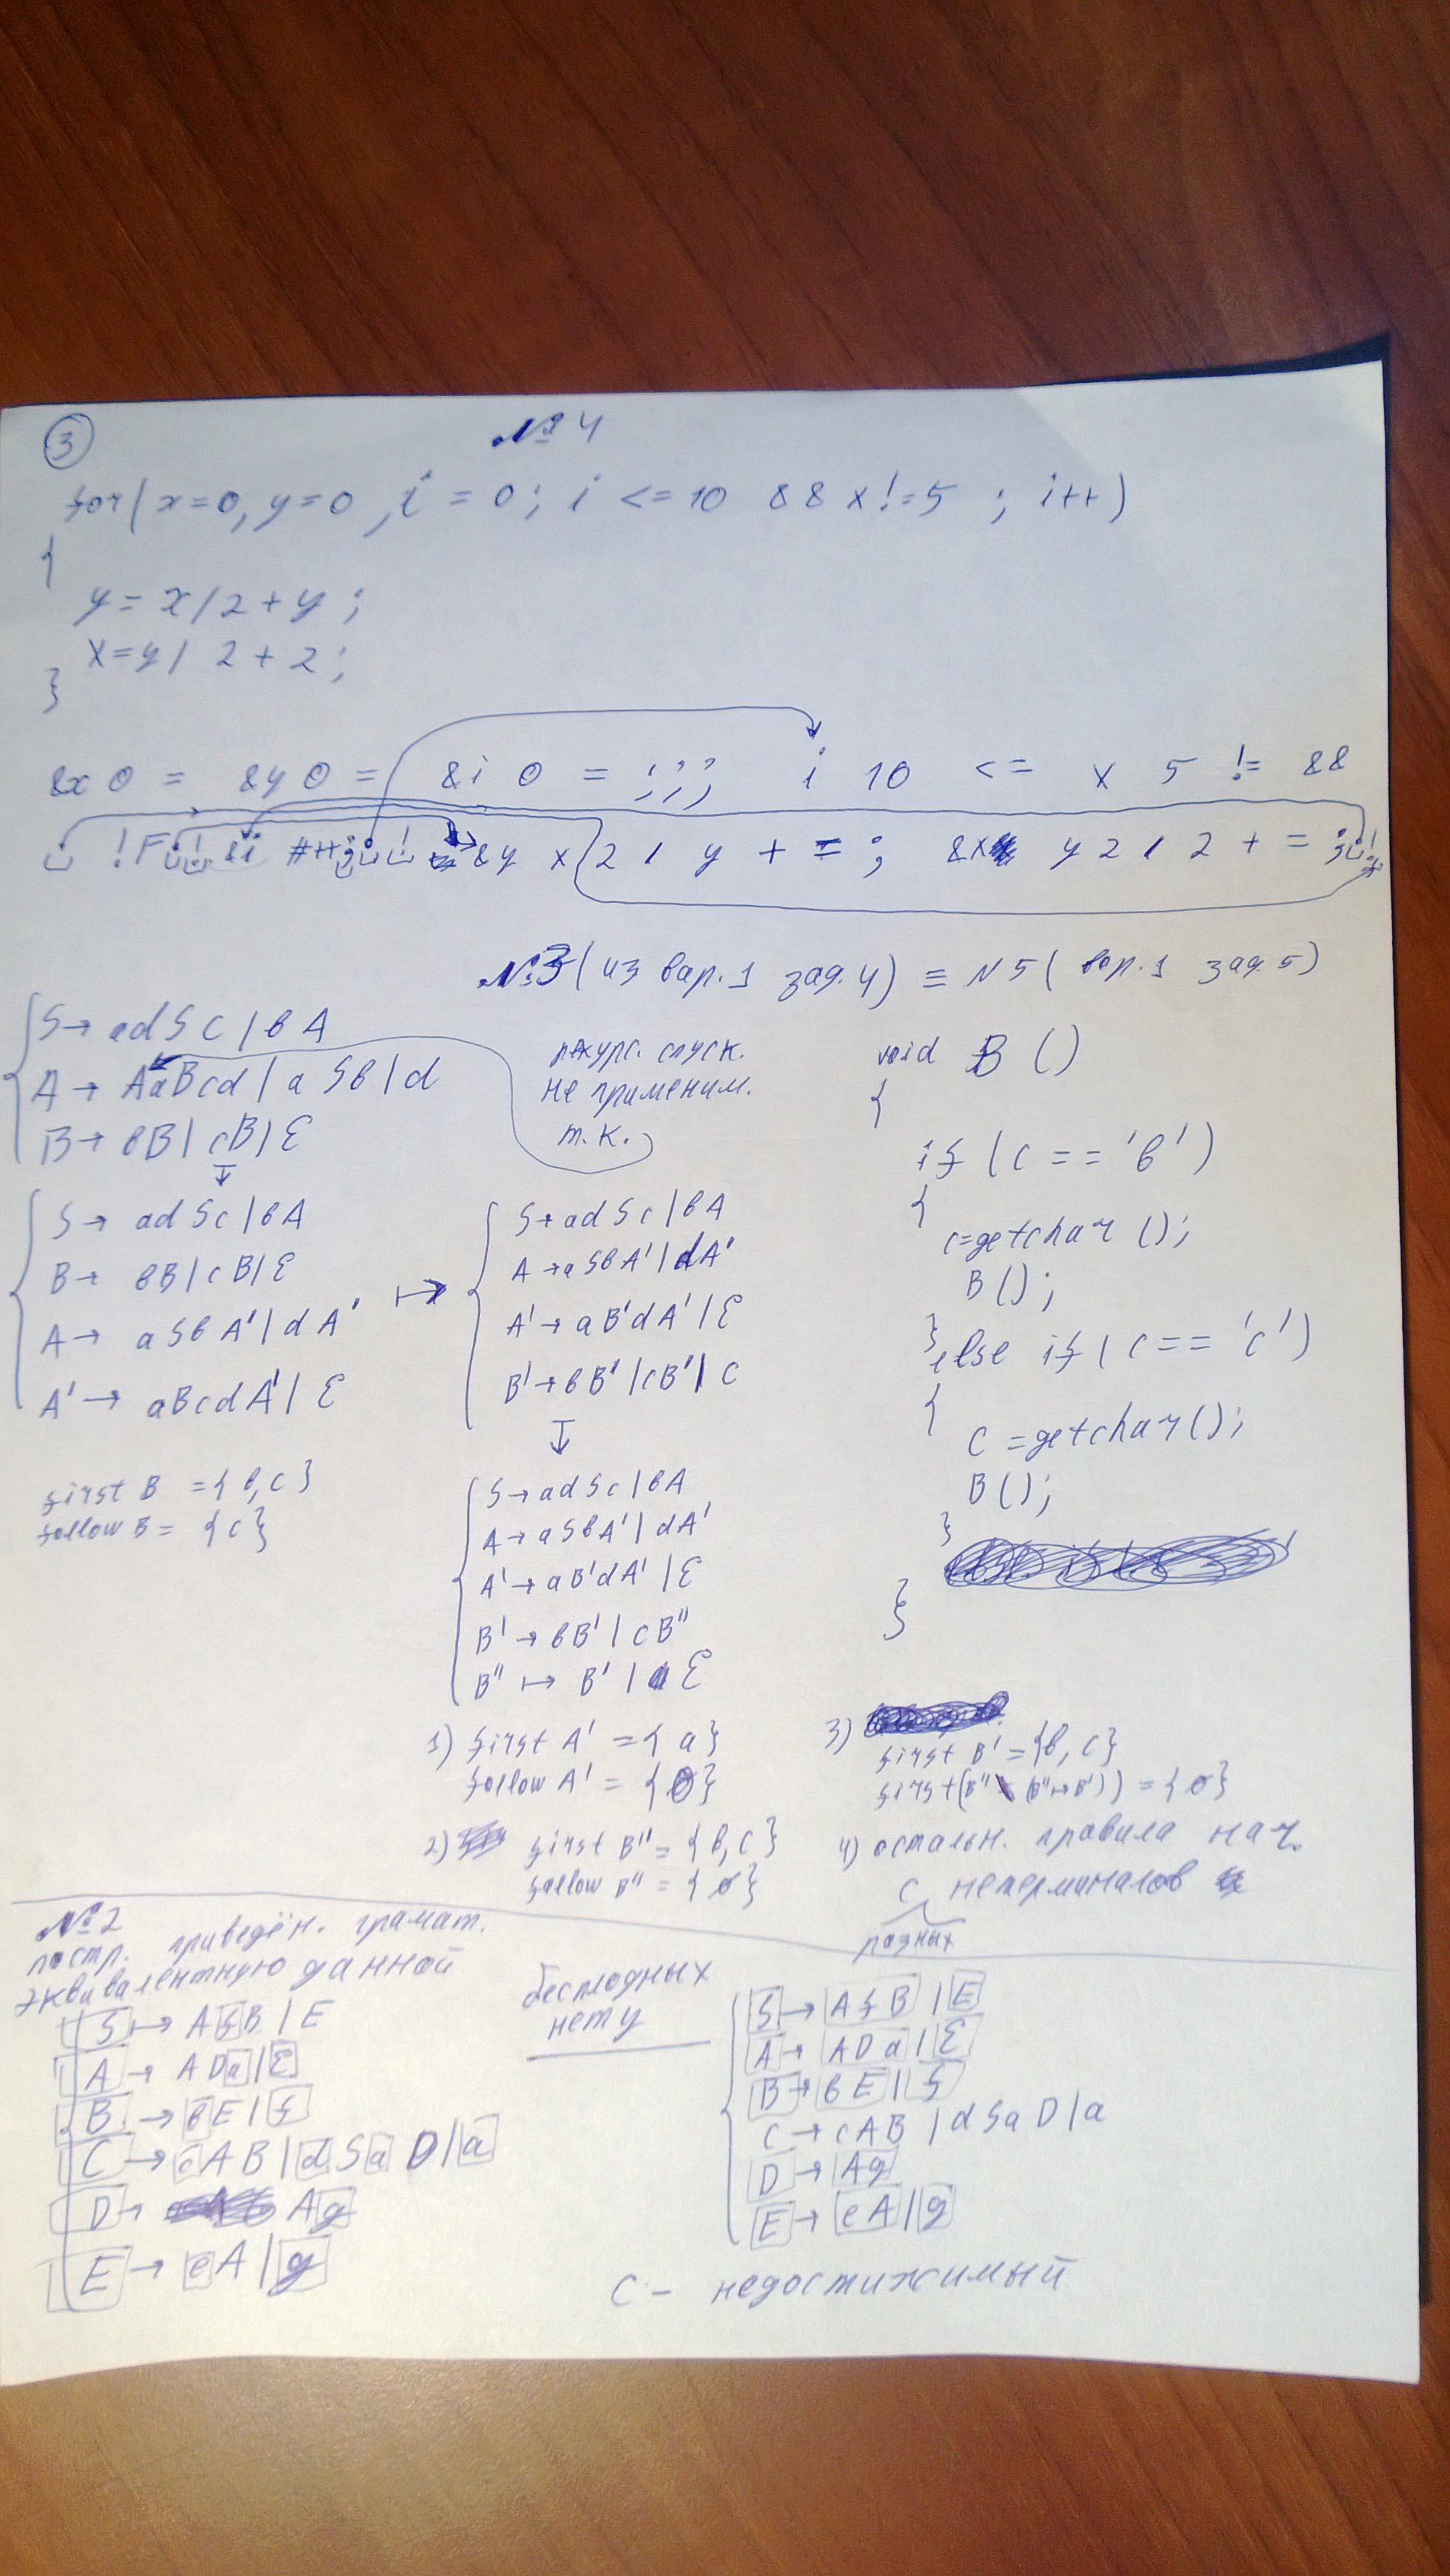 ③
№ 4
for(x=0, y=0, i=0; i <= 10 && x!=5 ; i++)
{
y = x/2 + y ;
x = y / 2 + 2 ;
}
&x 0 = &y 0 = &i 0 = ; ; ; i 10 <= x 5 != &&
!F ! &i #++ ; ! &y x 2 / y + = ; &x y 2 / 2 + = ; !
№3 (из вар.1 зад.4) ≡ N5 ( вар.1 зад.5)
S → adSc | bA
A → AaBcd | aSb | d
B → bB | cB | ε
рекурс. спуск.
не применим.
т.к.
S → adSc | bA
B → bB | cB | ε
A → aSbA' | dA'
A' → aBcdA' | ε
first B = {b, c}
follow B = {c}
↦
S → adSc | bA
A → aSbA' | dA'
A' → aB'dA' | ε
B' → bB' | cB' | c
S → adSc | bA
A → aSbA' | dA'
A' → aB'dA' | ε
B' → bB' | cB''
B'' ↦ B' | ε
1) first A' = {a}
follow A' = {∅}
2) first B'' = {b, c}
follow B'' = {∅}
void B ()
{
if (c == 'b')
{
c=getchar ();
B();
}else if (c == 'c')
{
c = getchar();
B();
}
}
3)
first B' = {b, c}
first(B'' \ (B''↦B')) = {∅}
4) остальн. правила нач.
с нетерминалов
разных
№2
постр. приведён. грамат.
эквивалентную данной
S → ASB | E
A → ADa | ε
B → bE | f
C → cAB | dSaD | a
D → Ag
E → eA | g
бесплодных
нету
S → ASB | E
A → ADa | ε
B → bE | f
C → cAB | dSaD | a
D → Ag
E → eA | g
C - недостижимый